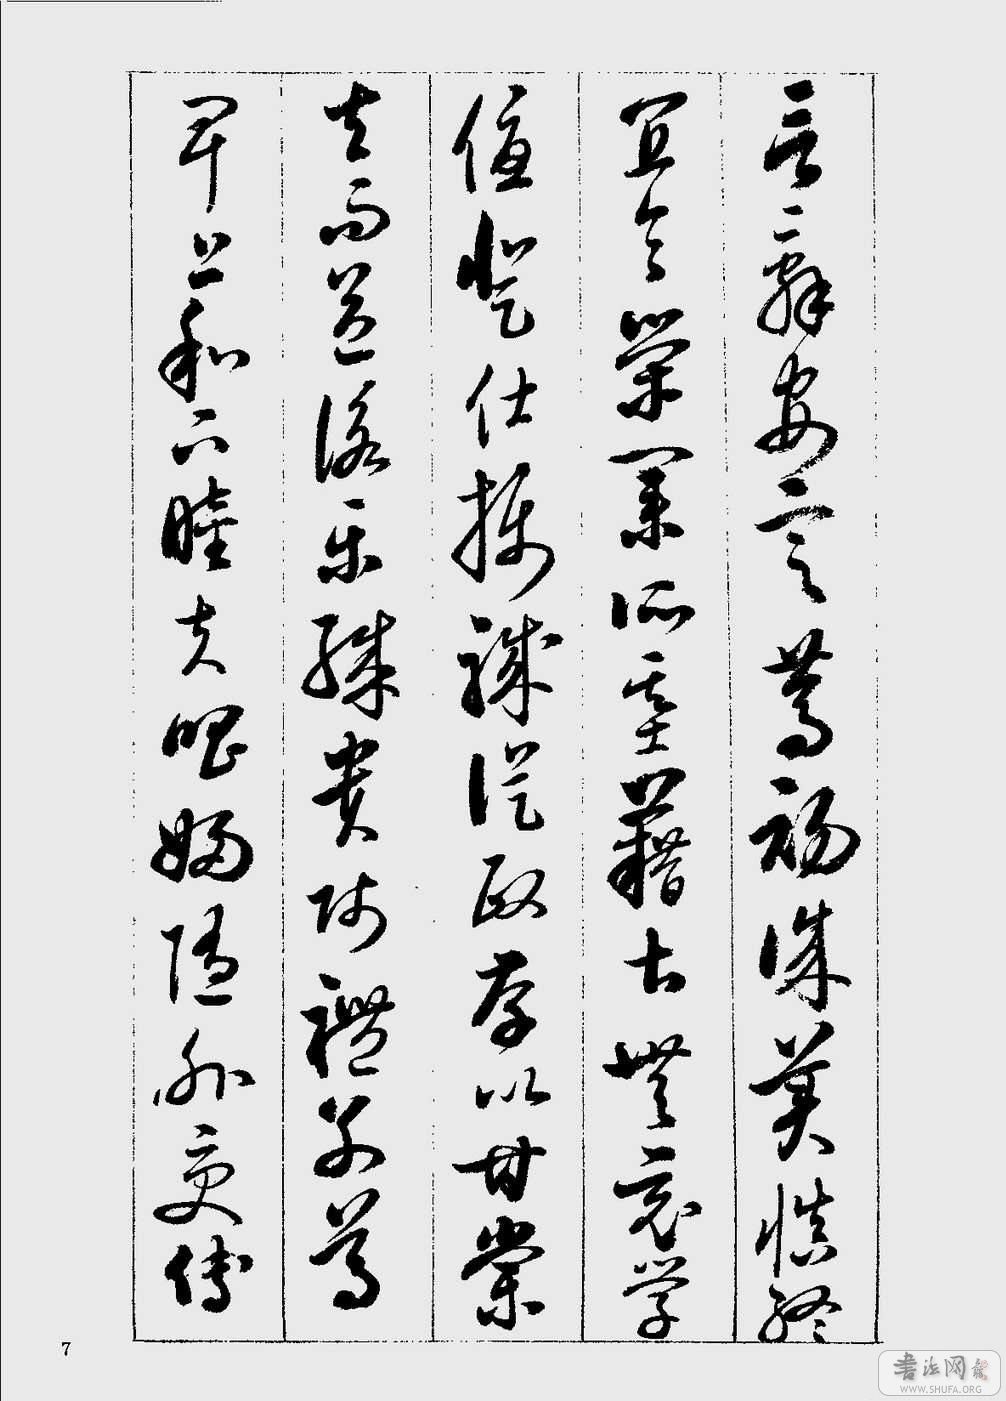 言辭安定篤初誠美慎終
宜令榮業所基籍甚無竟學
優登仕攝職從政存以甘棠
去而益詠樂殊貴賤禮別尊
卑上和下睦夫唱婦隨外受傅
7
書法网
WWW.SHUFA.ORG